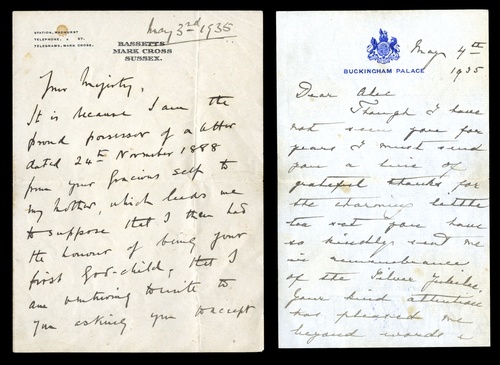 STATION, WADHURST
TELEPHONE, ST.
TELEGRAMS, MARK CROSS.
May 3rd 1935
BASSETTS
MARK CROSS
SUSSEX.
Your Majesty,
It is because I am the
proud possessor of a letter
dated 24th November 1888
from your Gracious self to
my Mother, which leads me
to suppose that I then had
the honour of being your
first God-child, that I
am venturing to write to
you asking you to accept
BUCKINGHAM PALACE
May 4th
1935
Dear
Though I have
not seen you for
years I must send
you a line of
grateful thanks for
the charming little
tea set you have
so kindly sent me
in remembrance
of the Silver Jubilee,
Your kind attention
has pleased me
beyond words &